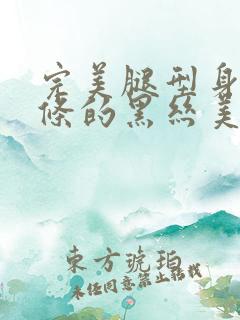 完美腿型身
條的黑丝美
東方琥珀
未经同意禁止转载